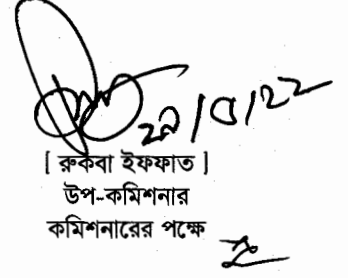 ২৯/৫/২২
[ রুকবা ইফফাত ]
উপ-কমিশনার
কমিশনারের পক্ষে